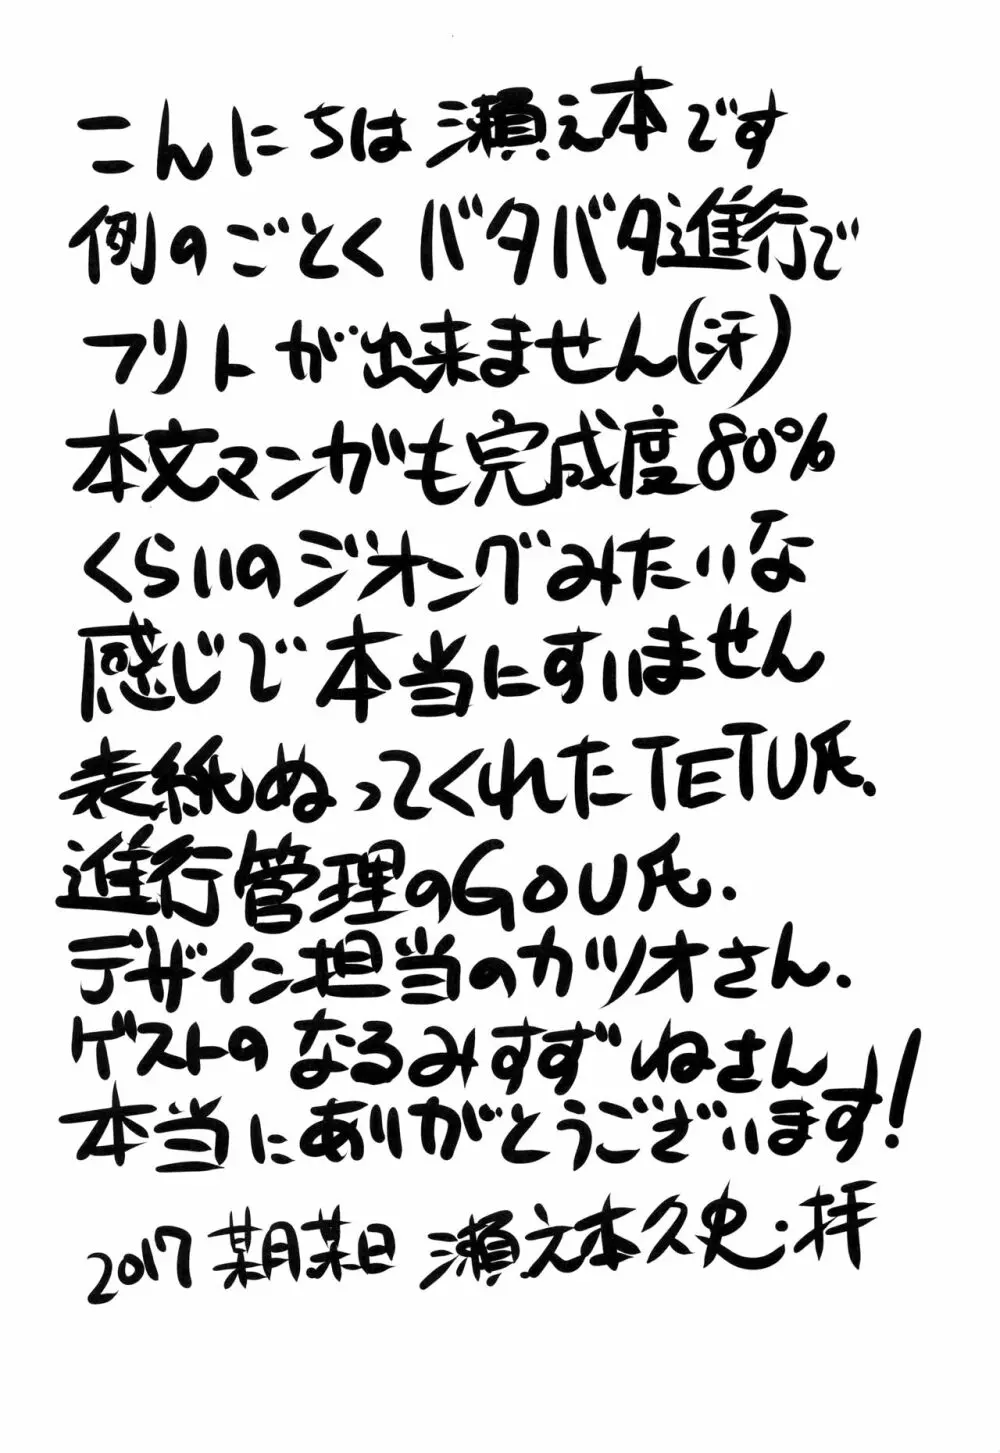 こんにちは瀬之本です
例のごとくバタバタ進行で
フリトが出来ません(汗)
本文マンガも完成度80%
くらいのジオングみたいな
感じで本当にすいません
表紙ぬってくれたTETU氏.
進行管理のGOU氏.
デザイン担当のカツオさん.
ゲストのなるみすずねさん
本当にありがとうございます!
2017某月某日 瀬之本久史・拝